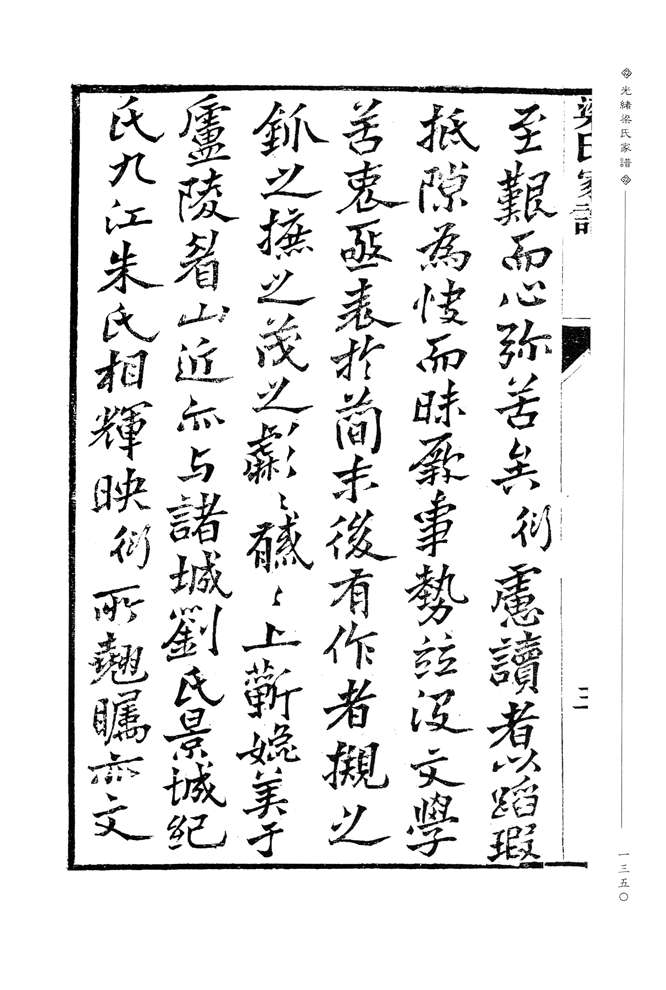 光緒梁氏家譜
一三五〇
梁氏家譜
三
至艱而心弥苦矣衍慮讀者以蹈瑕
抵隙為快而昧厥事勢竝没文學
苦衷亟表於簡末後有作者覬之
鉌之摭之茂之彪彪彧彧上蘄媲美于
廬陵眉山近亦与諸城劉氏景城紀
氏九江朱氏相輝映衍所翹矚亦文